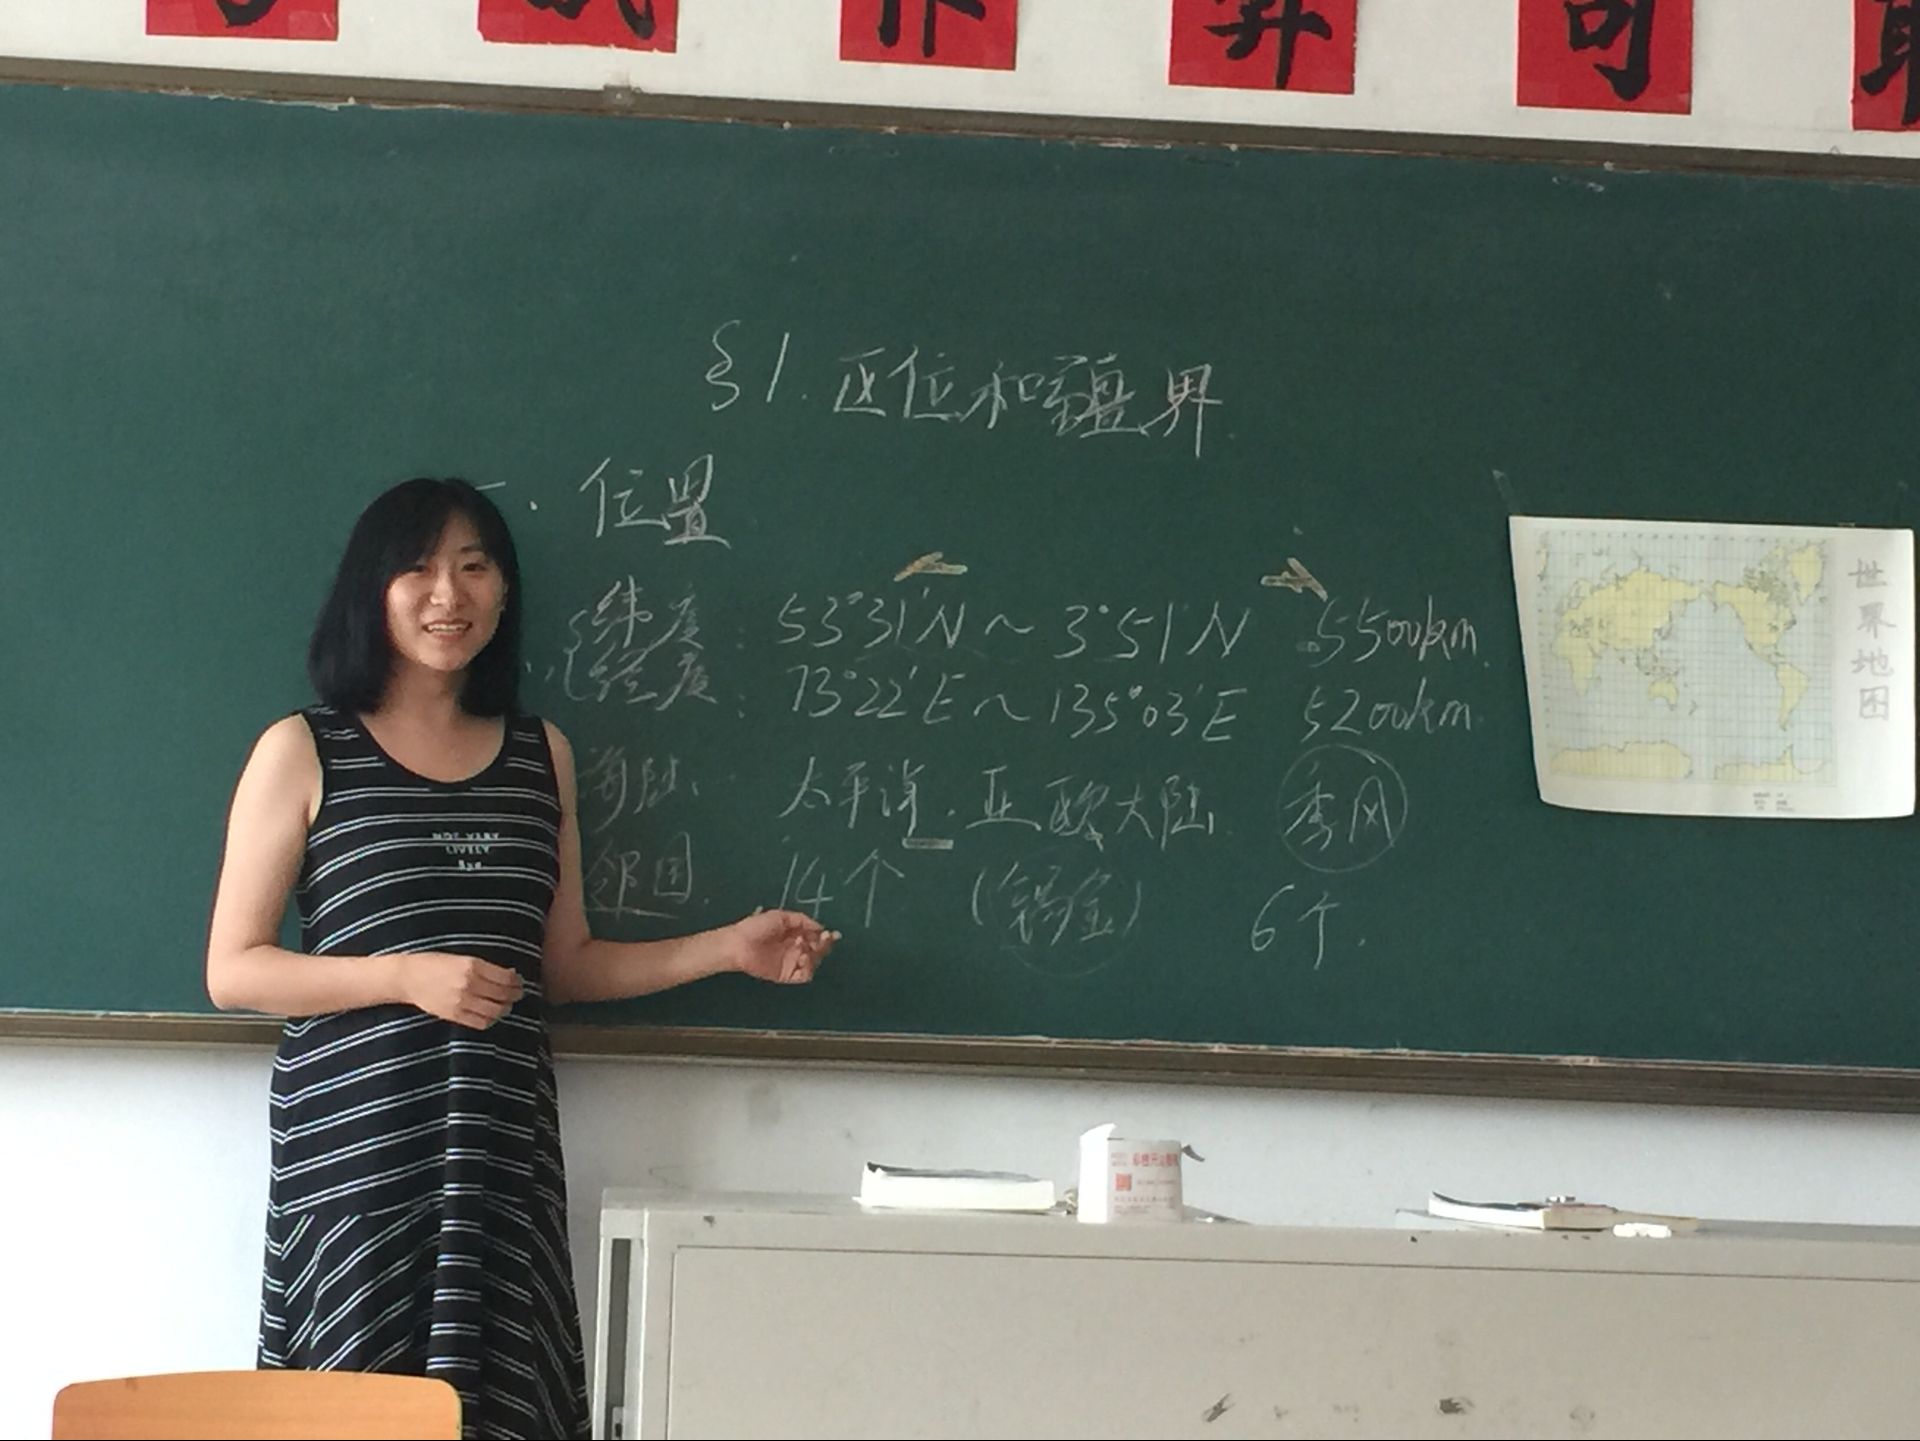 §1. 区位和疆界
一. 位置
纬度: 53°31′N ~ 3°51′N 5500km.
经度: 73°22′E ~ 135°03′E 5200km.
海陆. 太平洋. 亚欧大陆. 季风
邻国. 14个 (锡金) 6个.
世界地图
LIVELY